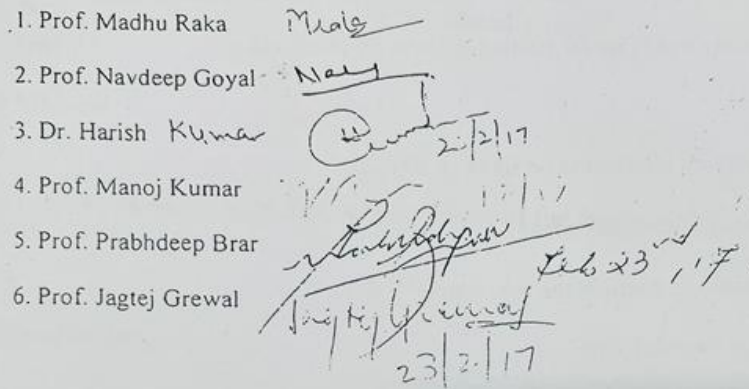 1. Prof. Madhu Raka
2. Prof. Navdeep Goyal
3. Dr. Harish Kumar
4. Prof. Manoj Kumar
5. Prof. Prabhdeep Brar
Feb 23rd, 17
6. Prof. Jagtej Grewal Jagtej Grewal
23/2/17